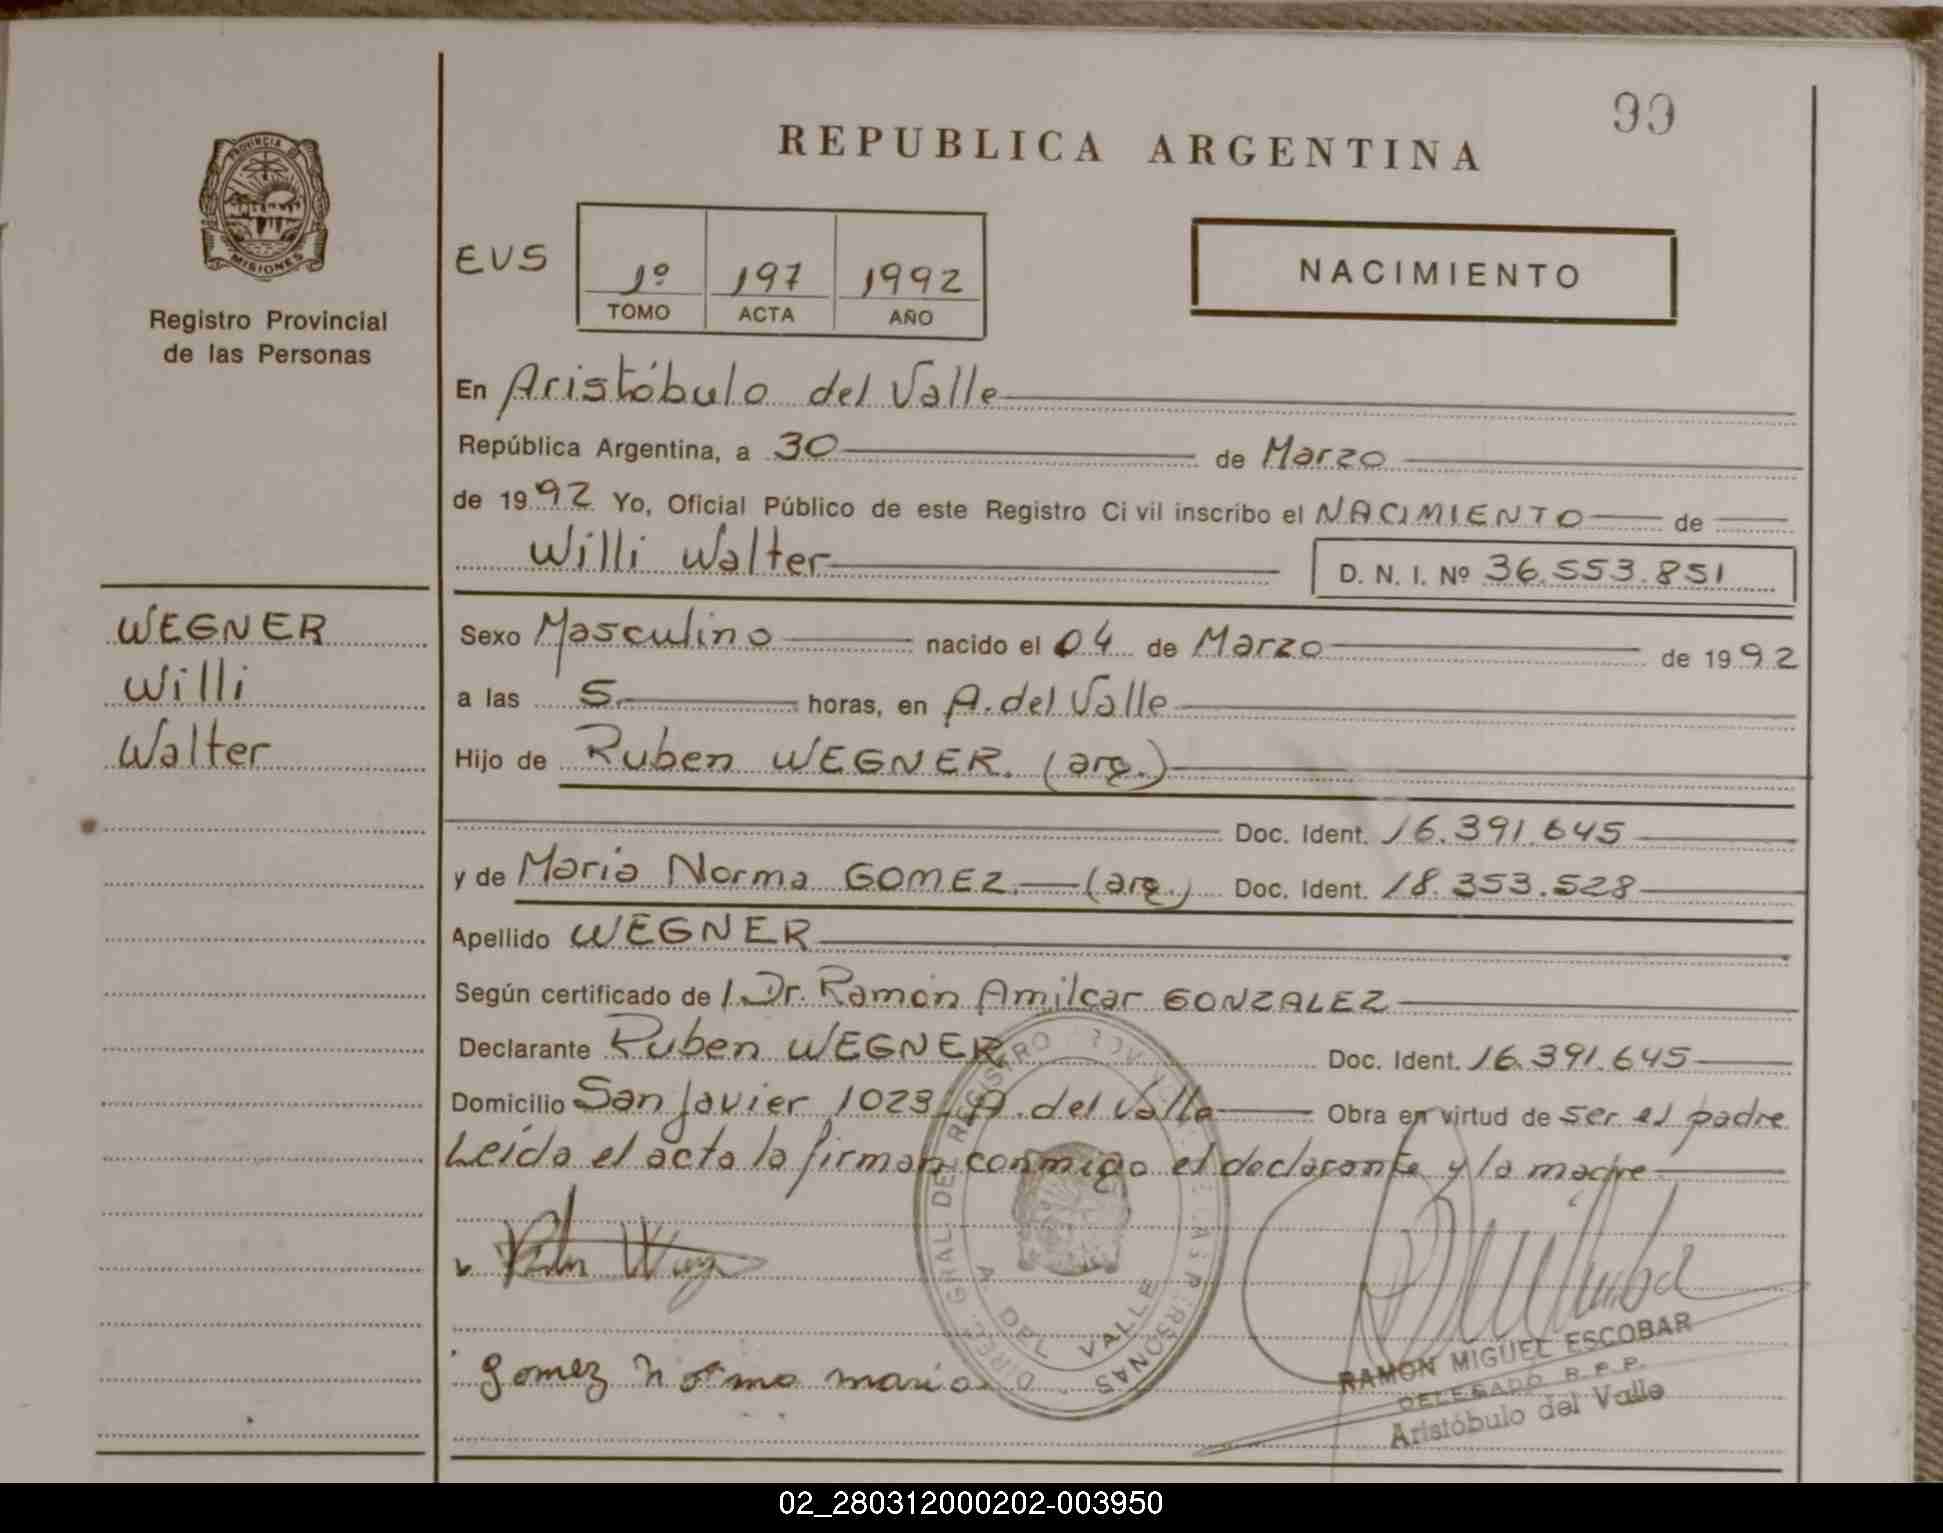 99
REPUBLICA ARGENTINA
PROVINCIA DE
MISIONES
Registro Provincial
de las Personas
EVS
1º 197 1992
TOMO ACTA AÑO
NACIMIENTO
En Aristóbulo del Valle
República Argentina, a 30 de Marzo
de 1992 Yo, Oficial Público de este Registro Ci vil inscribo el NACIMIENTO de
Willi Walter D. N. I. Nº 36.553.851
WEGNER
Willi
Walter
Sexo Masculino nacido el 04 de Marzo de 1992
a las 5 horas, en A. del Valle
Hijo de Ruben WEGNER. (arg.)
Doc. Ident. 16.391.645
y de Maria Norma GOMEZ (arg.) Doc. Ident. 18.353.528
Apellido WEGNER
Según certificado de l Dr. Ramón Amilcar GONZALEZ
Declarante Ruben WEGNER Doc. Ident. 16.391.645
Domicilio San Javier 1023 A. del Valle Obra en virtud de ser el padre
Leída el acta la firman conmigo el declarante y la madre
DIREC. GRAL. DEL REGISTRO DE LAS PERSONAS
A. DEL VALLE
gomez norma maria
RAMON MIGUEL ESCOBAR
DELEGADO R.P.P.
Aristóbulo del Valle
02_280312000202-003950